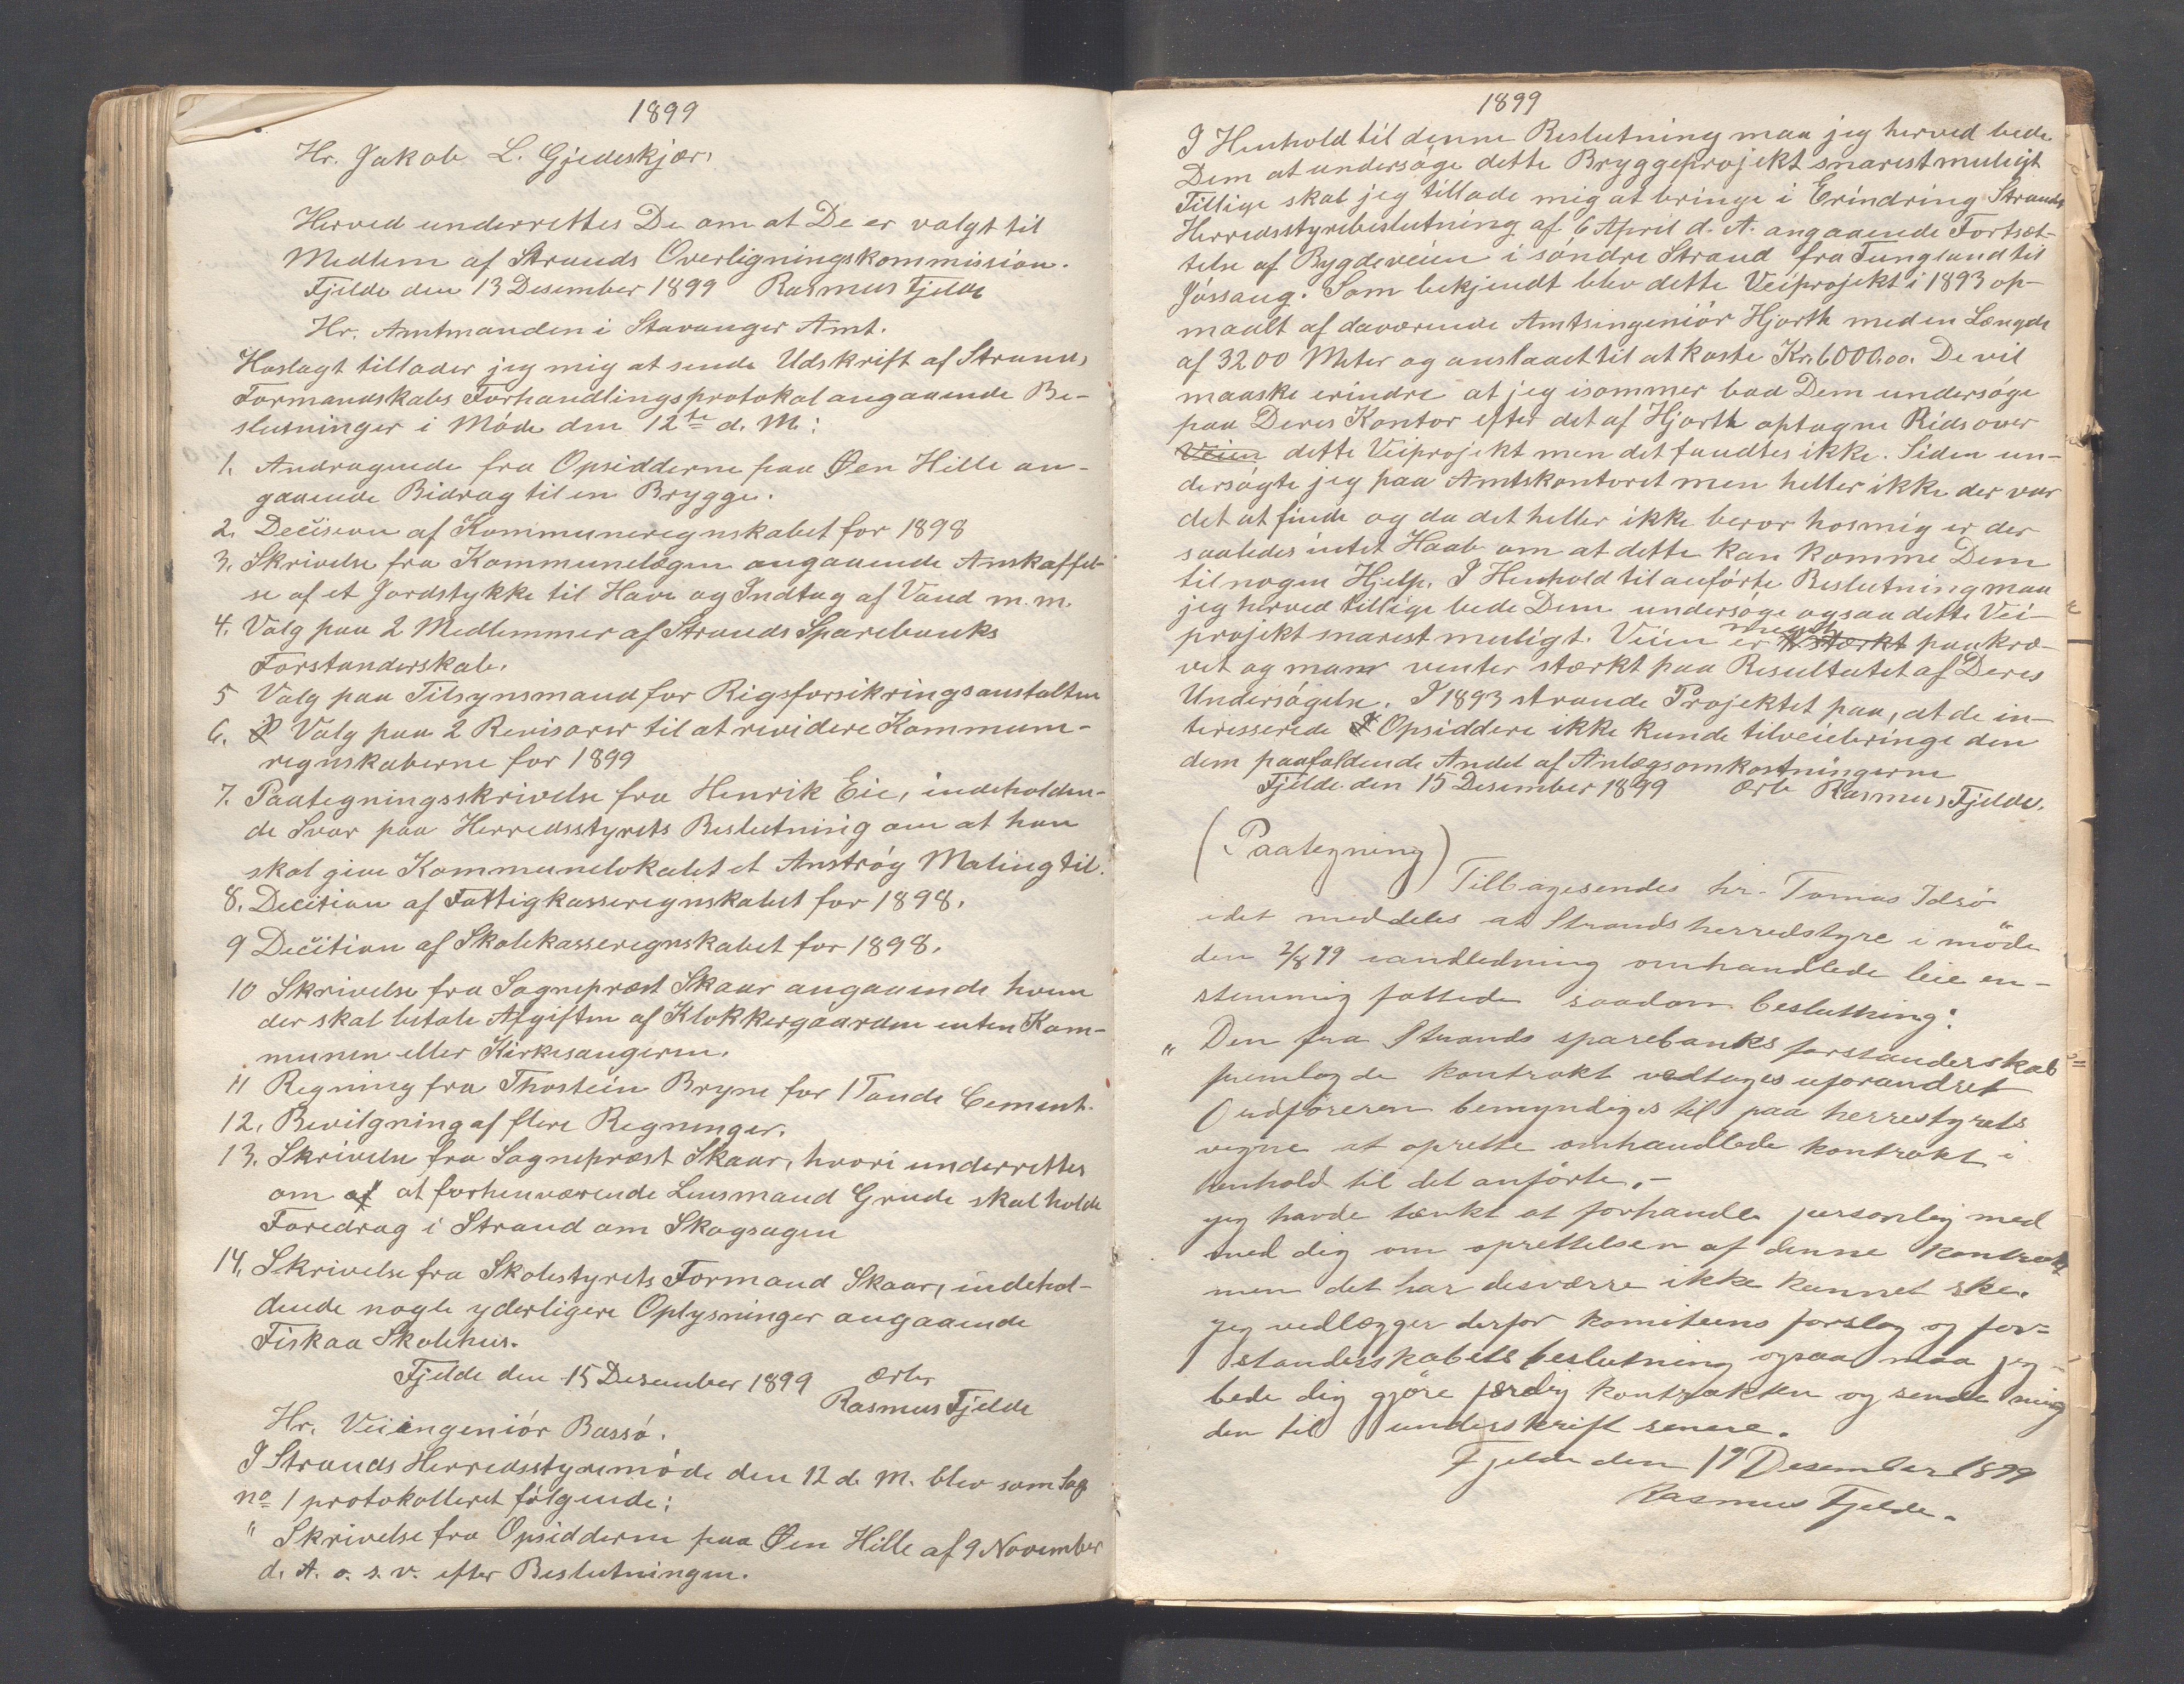 1899
Hr. Jakob L. Gjedeskjær,
Herved underrettes De om at De er valgt til
Medlem af Strands Overligningskommission.
Fjelde den 13 Desember 1899 Rasmus Fjelde
Hr. Amtmanden i Stavanger Amt.
Hoslagt tillader jeg mig at sende Udskrift af Strands
Formandskabs Forhandlingsprotokol angaaende Be-
slutninger i Móde den 12te d. M.:
1. Andragende fra Opsidderne paa Øen Hille an-
gaaende Bidrag til en Brygge.
2. Decision af Kommuneregnskabet for 1898
3. Skrivelse fra Kommunelægen angaaende Anskaffel-
se af et Jordstykke til Have og Indtag af Vand m. m.
4. Valg paa 2 Medlemmer af Strands Sparebanks
Forstanderskab.
5 Valg paa Tilsynsmand for Rigsforsikringsanstalten
6. Valg paa 2 Revisorer til at revidere Kommune-
regnskaberne for 1899
7. Paategningsskrivelse fra Henrik Eie, indeholden-
de Svar paa Herredsstyrets Beslutning om at han
skal give Kommunelokalet et Anstróg Maling til.
8. Decition af Fattigkasseregnskabet for 1898.
9 Decition af Skolekasseregnskabet for 1898.
10 Skrivelse fra Sognepræst Skaar angaaende hvem
der skal betale Afgiften af Klokkergaarden enten Kom-
munen eller Kirkesangeren.
11 Regning fra Thostein Bryne for 1 Tønde Cement.
12. Bevilgning af flere Regninger.
13. Skrivelse fra Sognepræst Skaar, hvori underrettes
om at at forhenværende Lensmand Grude skal holde
Foredrag i Strand om Skogsagen
14. Skrivelse fra Skolestyrets Formand Skaar, indehol-
dende nogle yderligere Oplysninger angaaende
Fiskaa Skolehus.
Fjelde den 15 Desember 1899 Ærb.
Rasmus Fjelde
Hr. Veiingeniór Bassó.
I Strands Herredsstyremóde den 12 d. M. blev som Sag
no 1 protokolleret fólgende:
" Skrivelse fra Opsidderne paa Øen Hille af 9 November
d. A. o. s. v. efter Beslutningen.
1899
I Henhold til denne Beslutning maa jeg herved bede
Dem at undersóge dette Bryggeprojekt snarest muligt
Tillige skal jeg tillade mig at bringe i Erindring Strands
Herredsstyrebeslutning af 6 April d. A. angaaende Fortsæt-
telse af Bygdeveien i sóndre Strand fra Tungland til
Jóssang. Som bekjendt blev dette Veiprojekt i 1893 op-
maalt af daværende Amtsingeniór Hjorth med en Længde
af 3200 Meter og anslaaet til at koste Kr. 6000,00. De vil
maaske erindre at jeg isommer bad Dem undersóge
paa Deres Kontor efter det af Hjorth optagne Rids over
Veien dette Veiprojekt men det fandtes ikke. Siden un-
dersógte jeg paa Amtskontoret men heller ikke der var
det at finde og da det heller ikke beror hos mig er der
saaledes intet Haab om at dette kan komme Dem
til nogen Hjelp. I Henhold til anfórte Beslutning maa
jeg herved tillige bede Dem undersóge ogsaa dette Vei-
projekt snarest muligt. Veien er meget stærkt paakræ-
vet og man venter stærkt paa Resultatet af Deres
Undersógelse. I 1893 strandede Projektet paa, at de in-
teresserede Opsiddere ikke kunde tilveiebringe den
dem paafaldende Andel af Anlægsomkostningerne
Fjelde den 15 Desember 1899 Ærb Rasmus Fjelde.
(Paategning)
Tilbagesendes hr. Tomas Idsö
idet meddeles at Strands herredstyre i möde
den 2/8 99 omhandlede leie en-
stemmig fattede saadan beslutning:
" Den fra Strands sparebanks forstanderskab
fremlagde kontrakt vedtages uforandret
Ordföreren bemyndiges til paa herrestyrets
vegne at oprette omhandlede kontrakt i
henhold til det anförte. -
jeg havde tænkt at forhandle personlig med
med dig om oprettelsen af denne kontrakt
men det har desværre ikke kunnet ske.
jeg vedlægger derfor komiteens forslag og for=
standerskabets beslutning ogsaa maa jeg
bede dig gjöre færdig kontrakten og sende mig
den til underskrift senere.
Fjelde den 19 Desember 1899
Rasmus Fjelde.